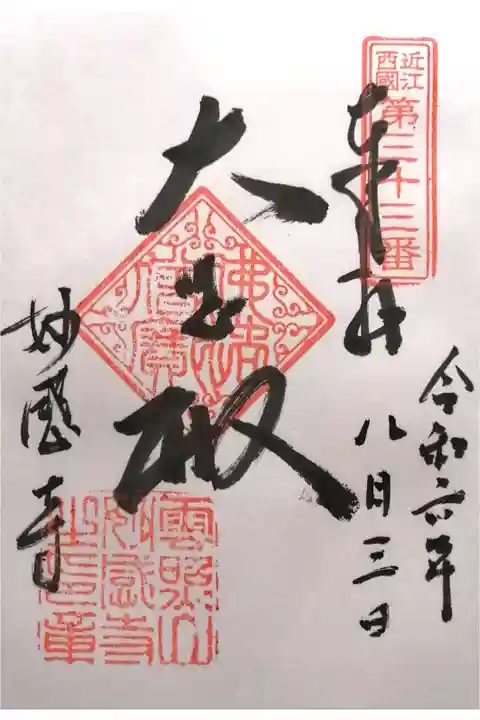 近江
西國
第三十三番
奉拝
令和六年
八月三日
大悲殿
佛法
僧寶
妙感寺
雲照山
妙感寺
之印章